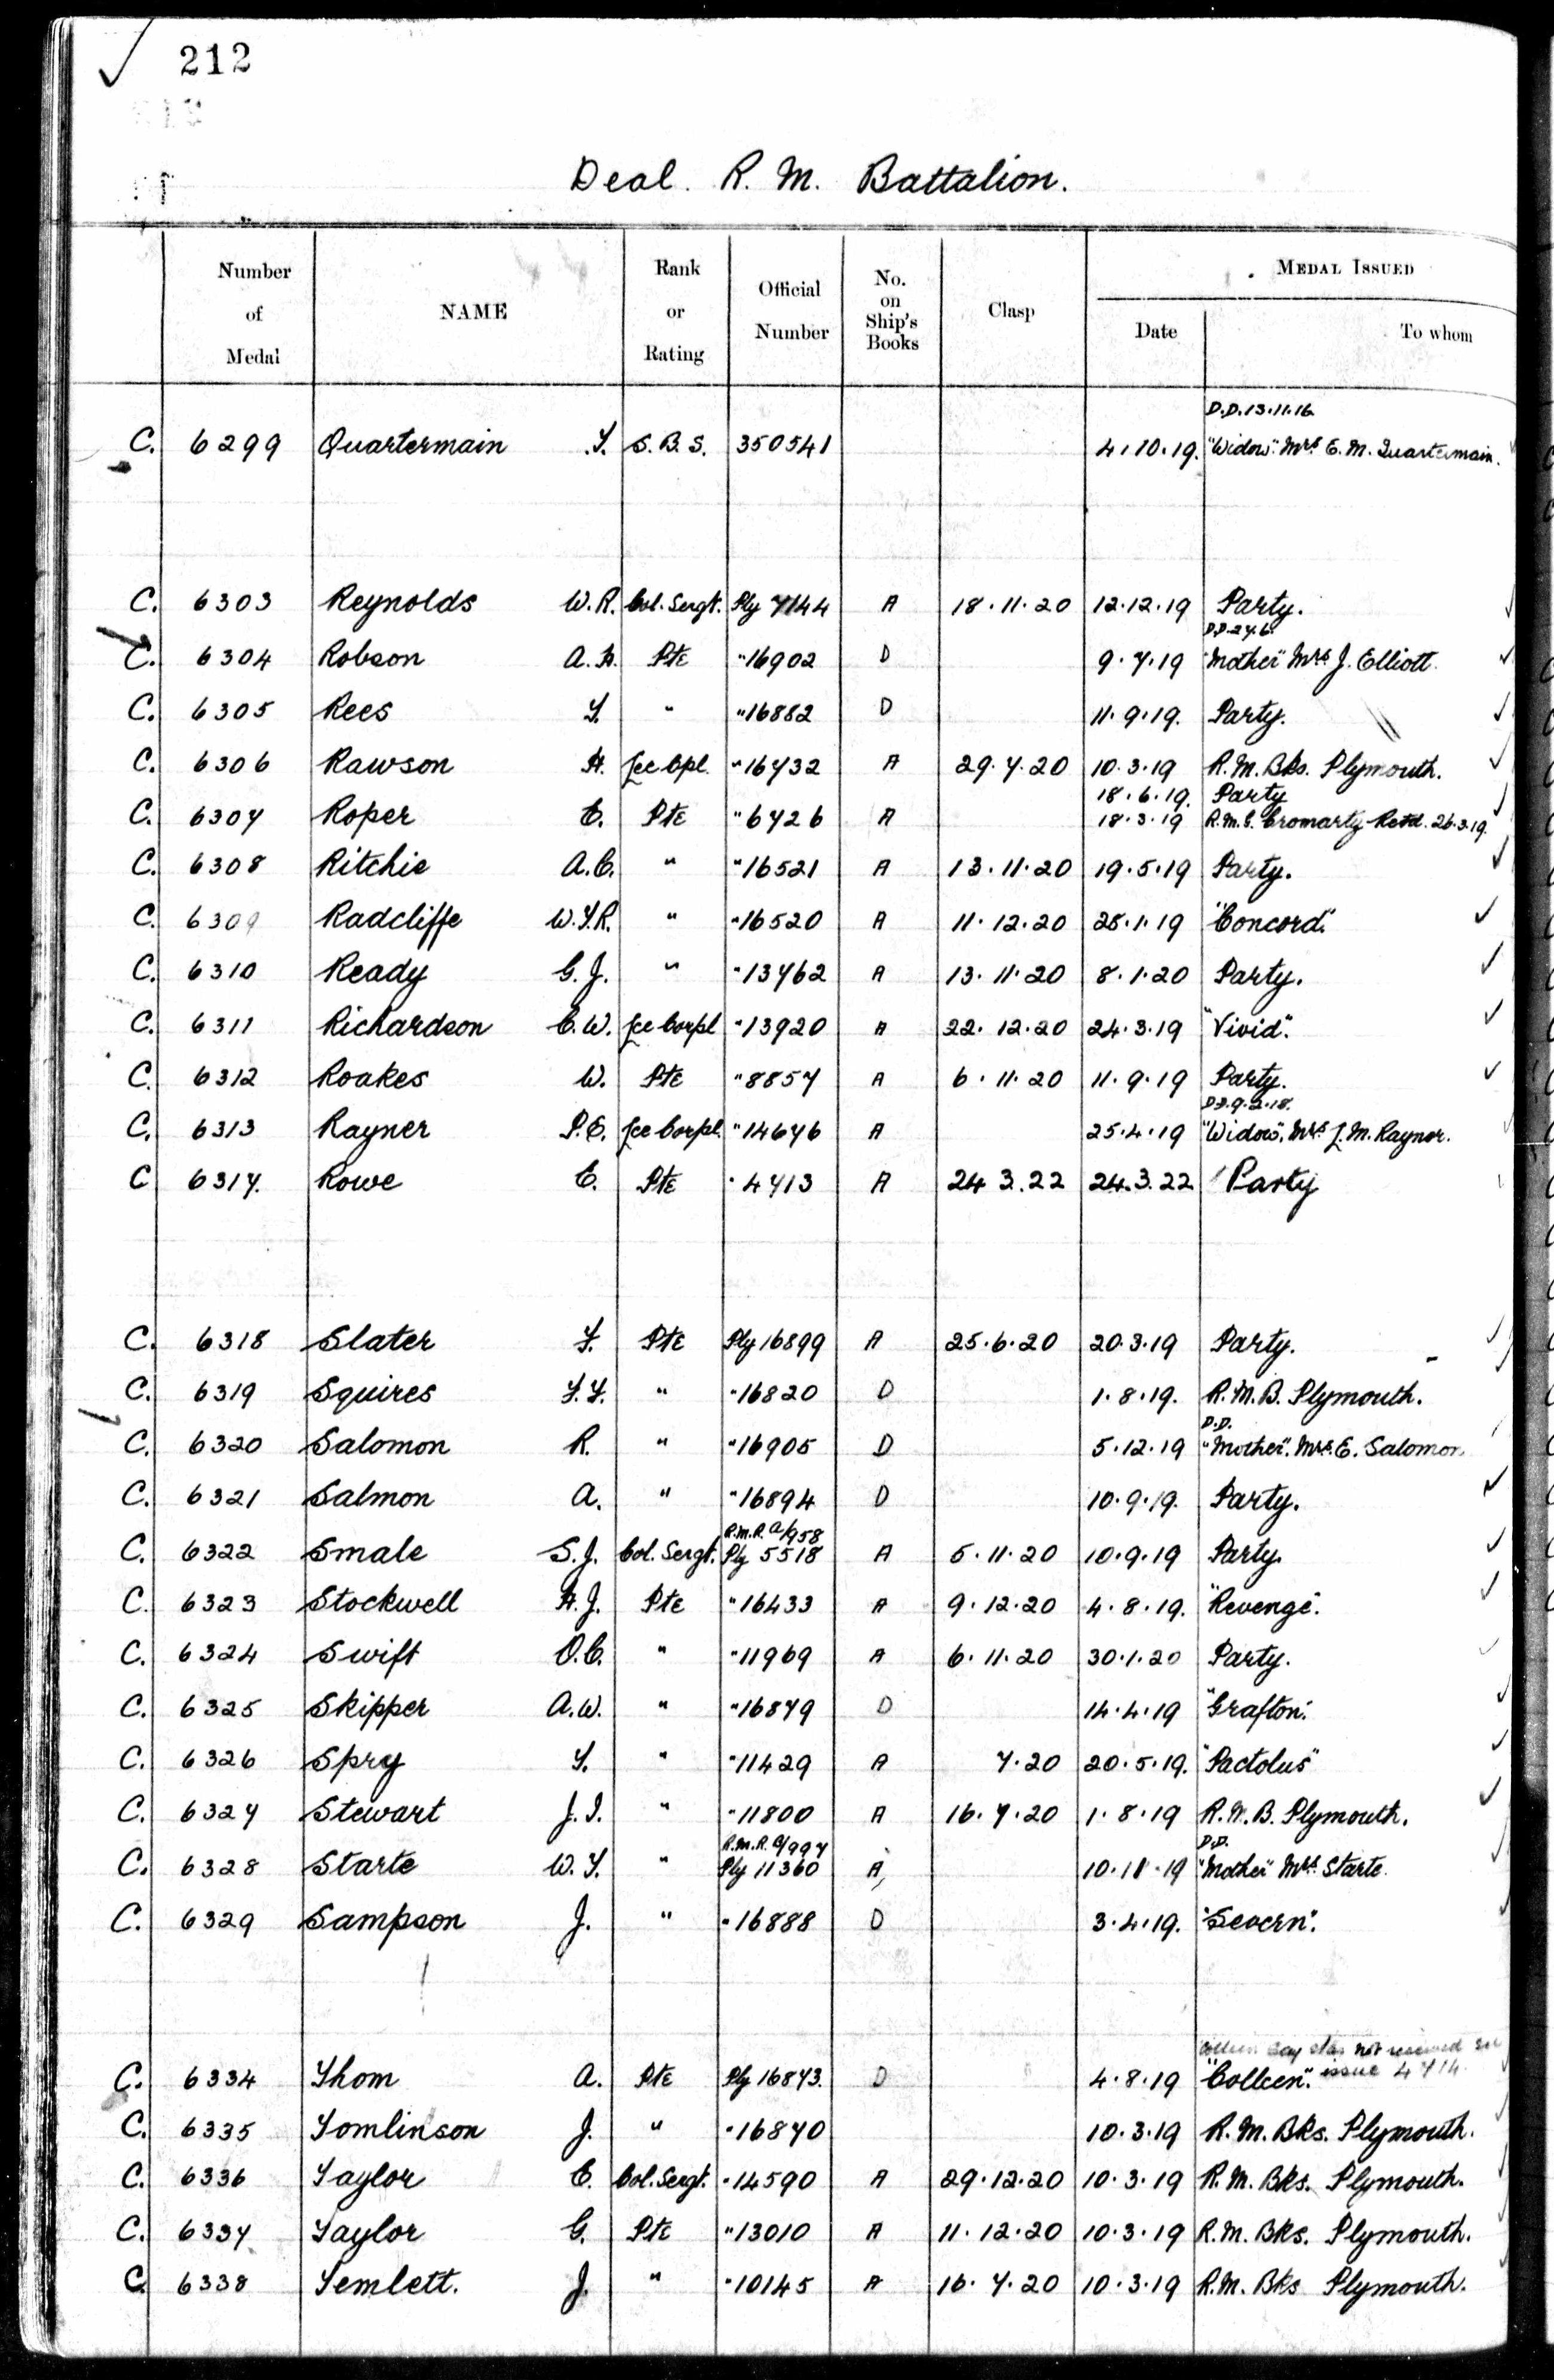 212
Deal. R. M. Battalion.
Number of Medal NAME Rank or Rating Official Number No. on Ship's Books Clasp MEDAL ISSUED
Date To whom
D.D. 13.11.16.
C. 6299 Quartermain F. S.B.S. 350541 4.10.19. "Widow". Mrs. E. M. Quartermain.
C. 6303 Reynolds W.R. Col. Sergt. Ply 7144 A 18.11.20 12.12.19 Party.
C. 6304 Robson A.H. Pte " 16902 D 9.7.19 "Mother" Mrs. J. Elliott.
C. 6305 Rees F. " " 16882 D 11.9.19. Party.
C. 6306 Rawson H. Lce Cpl. " 16732 A 29.7.20 10.3.19 R.M. Bks. Plymouth.
18.6.19. Party
C. 6307 Roper C. Pte " 6726 A 18.3.19 R.M.G. Cromarty Retd. 26.3.19.
C. 6308 Ritchie A.C. " " 16521 A 13.11.20 19.5.19 Party.
C. 6309 Radcliffe W.F.R. " " 16520 A 11.12.20 25.1.19 "Concord".
C. 6310 Ready G.J. " " 13762 A 13.11.20 8.1.20 Party.
C. 6311 Richardson C.W. Lce Corpl " 13920 A 22.12.20 24.3.19 "Vivid".
C. 6312 Roakes W. Pte " 8857 A 6.11.20 11.9.19 Party.
D.D. 9.2.18.
C. 6313 Rayner P.E. Lce Corpl. " 14676 A 25.4.19 "Widow". Mrs. L. M. Rayner.
C 6314. Rowe C. Pte " 4713 A 24 3.22 24.3.22 Party
C. 6318 Slater F. Pte Ply 16899 A 25.6.20 20.3.19 Party.
C. 6319 Squires F.F. " " 16820 D 1.8.19. R.M.B. Plymouth.
D.D.
C. 6320 Salomon R. " " 16905 D 5.12.19 "Mother". Mrs. E. Salomon
C. 6321 Salmon A. " " 16894 D 10.9.19. Party.
R.M.R. A/958
C. 6322 Smale S.J. Col. Sergt. Ply 5518 A 5.11.20 10.9.19 Party.
C. 6323 Stockwell H.J. Pte " 16433 A 9.12.20 4.8.19. "Revenge".
C. 6324 Swift O.C. " " 11969 A 6.11.20 30.1.20 Party.
C. 6325 Skipper A.W. " " 16879 D 14.4.19 "Grafton".
C. 6326 Spry F. " " 11429 A 7.20 20.5.19. "Pactolus"
C. 6327 Stewart J.I. " " 11800 A 16.7.20 1.8.19 R.M.B. Plymouth.
R.M.R. A/997 D.D.
C. 6328 Starte W.F. " Ply 11360 A 10.11.19 "Mother" Mrs. Starte.
C. 6329 Sampson J. " " 16888 D 3.4.19. "Severn".
not received
C. 6334 Thom A. Pte Ply 16873. D 4.8.19 "Colleen". issue 4714
C. 6335 Tomlinson J. " " 16870 10.3.19 R.M. Bks. Plymouth.
C. 6336 Taylor C. Col. Sergt. " 14590 A 29.12.20 10.3.19 R.M. Bks. Plymouth.
C. 6337 Taylor G. Pte " 13010 A 11.12.20 10.3.19 R.M. Bks. Plymouth.
C. 6338 Temlett. J. " " 10145 A 16.7.20 10.3.19 R.M. Bks Plymouth.